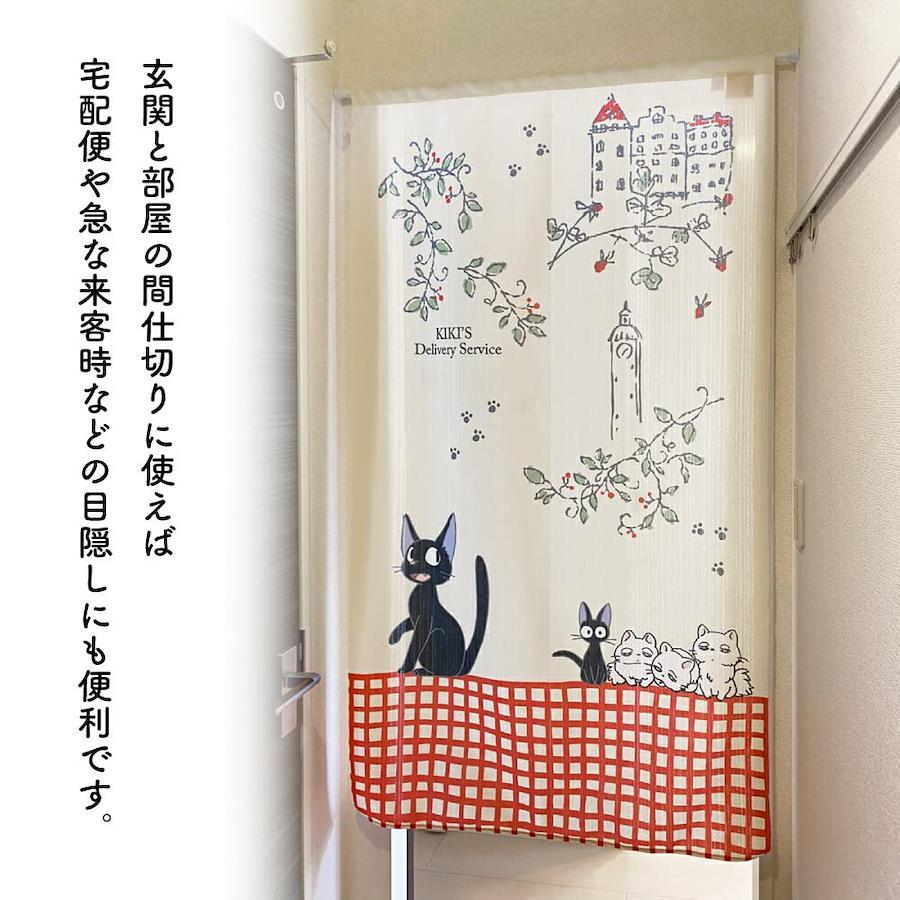 玄関と部屋の間仕切りに使えば
宅配便や急な来客時などの目隠しにも便利です。
KIKI'S
Delivery Service